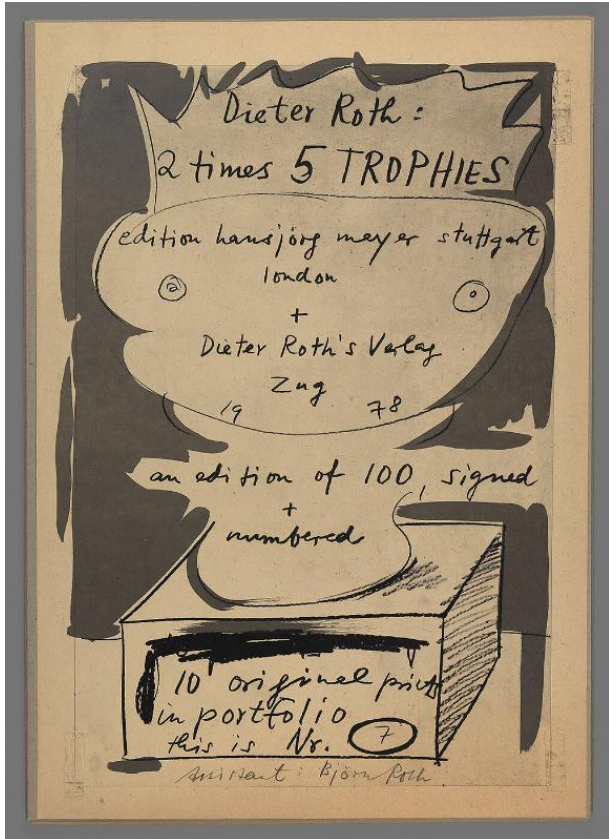 Dieter Roth:
2 times 5 TROPHIES
edition hansjörg mayer stuttgart
london
+
Dieter Roth's Verlag
Zug
19 78
an edition of 100, signed
+
numbered
10 original prints
in portfolio
this is Nr. 7
Assistant: Björn Roth